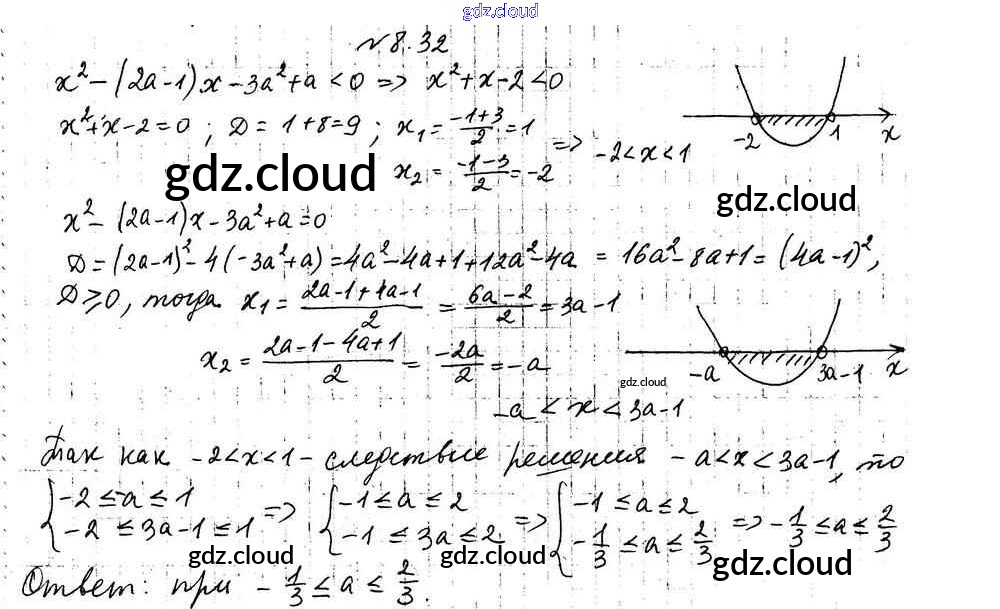 gdz.cloud
№8.32
x² – (2a-1)x – 3a² + a < 0 => x² + x - 2 < 0
x² + x - 2 = 0 ; D = 1+8=9 ; x₁ = (-1+3)/2 = 1
x₂ = (-1-3)/2 = -2
=> -2 < x < 1
-2 1 x
gdz.cloud
gdz.cloud
x² – (2a-1)x - 3a² + a = 0
D = (2a-1)² - 4(-3a²+a) = 4a² - 4a + 1 + 12a² - 4a = 16a² - 8a + 1 = (4a-1)²,
D ≥ 0, тогда x₁ = (2a-1+4a-1)/2 = (6a-2)/2 = 3a-1
x₂ = (2a-1-4a+1)/2 = (-2a)/2 = -a
-a 3a-1 x
gdz.cloud
-a < x < 3a-1
Так как -2<x<1 - следствие решения -a<x<3a-1, то
{ -2 ≤ -a ≤ 1 => { -1 ≤ a ≤ 2 => { -1 ≤ a ≤ 2
-2 ≤ 3a-1 ≤ 1 -1 ≤ 3a ≤ 2 -1/3 ≤ a ≤ 2/3 => -1/3 ≤ a ≤ 2/3
gdz.cloud gdz.cloud gdz.cloud
Ответ: при -1/3 ≤ a ≤ 2/3.